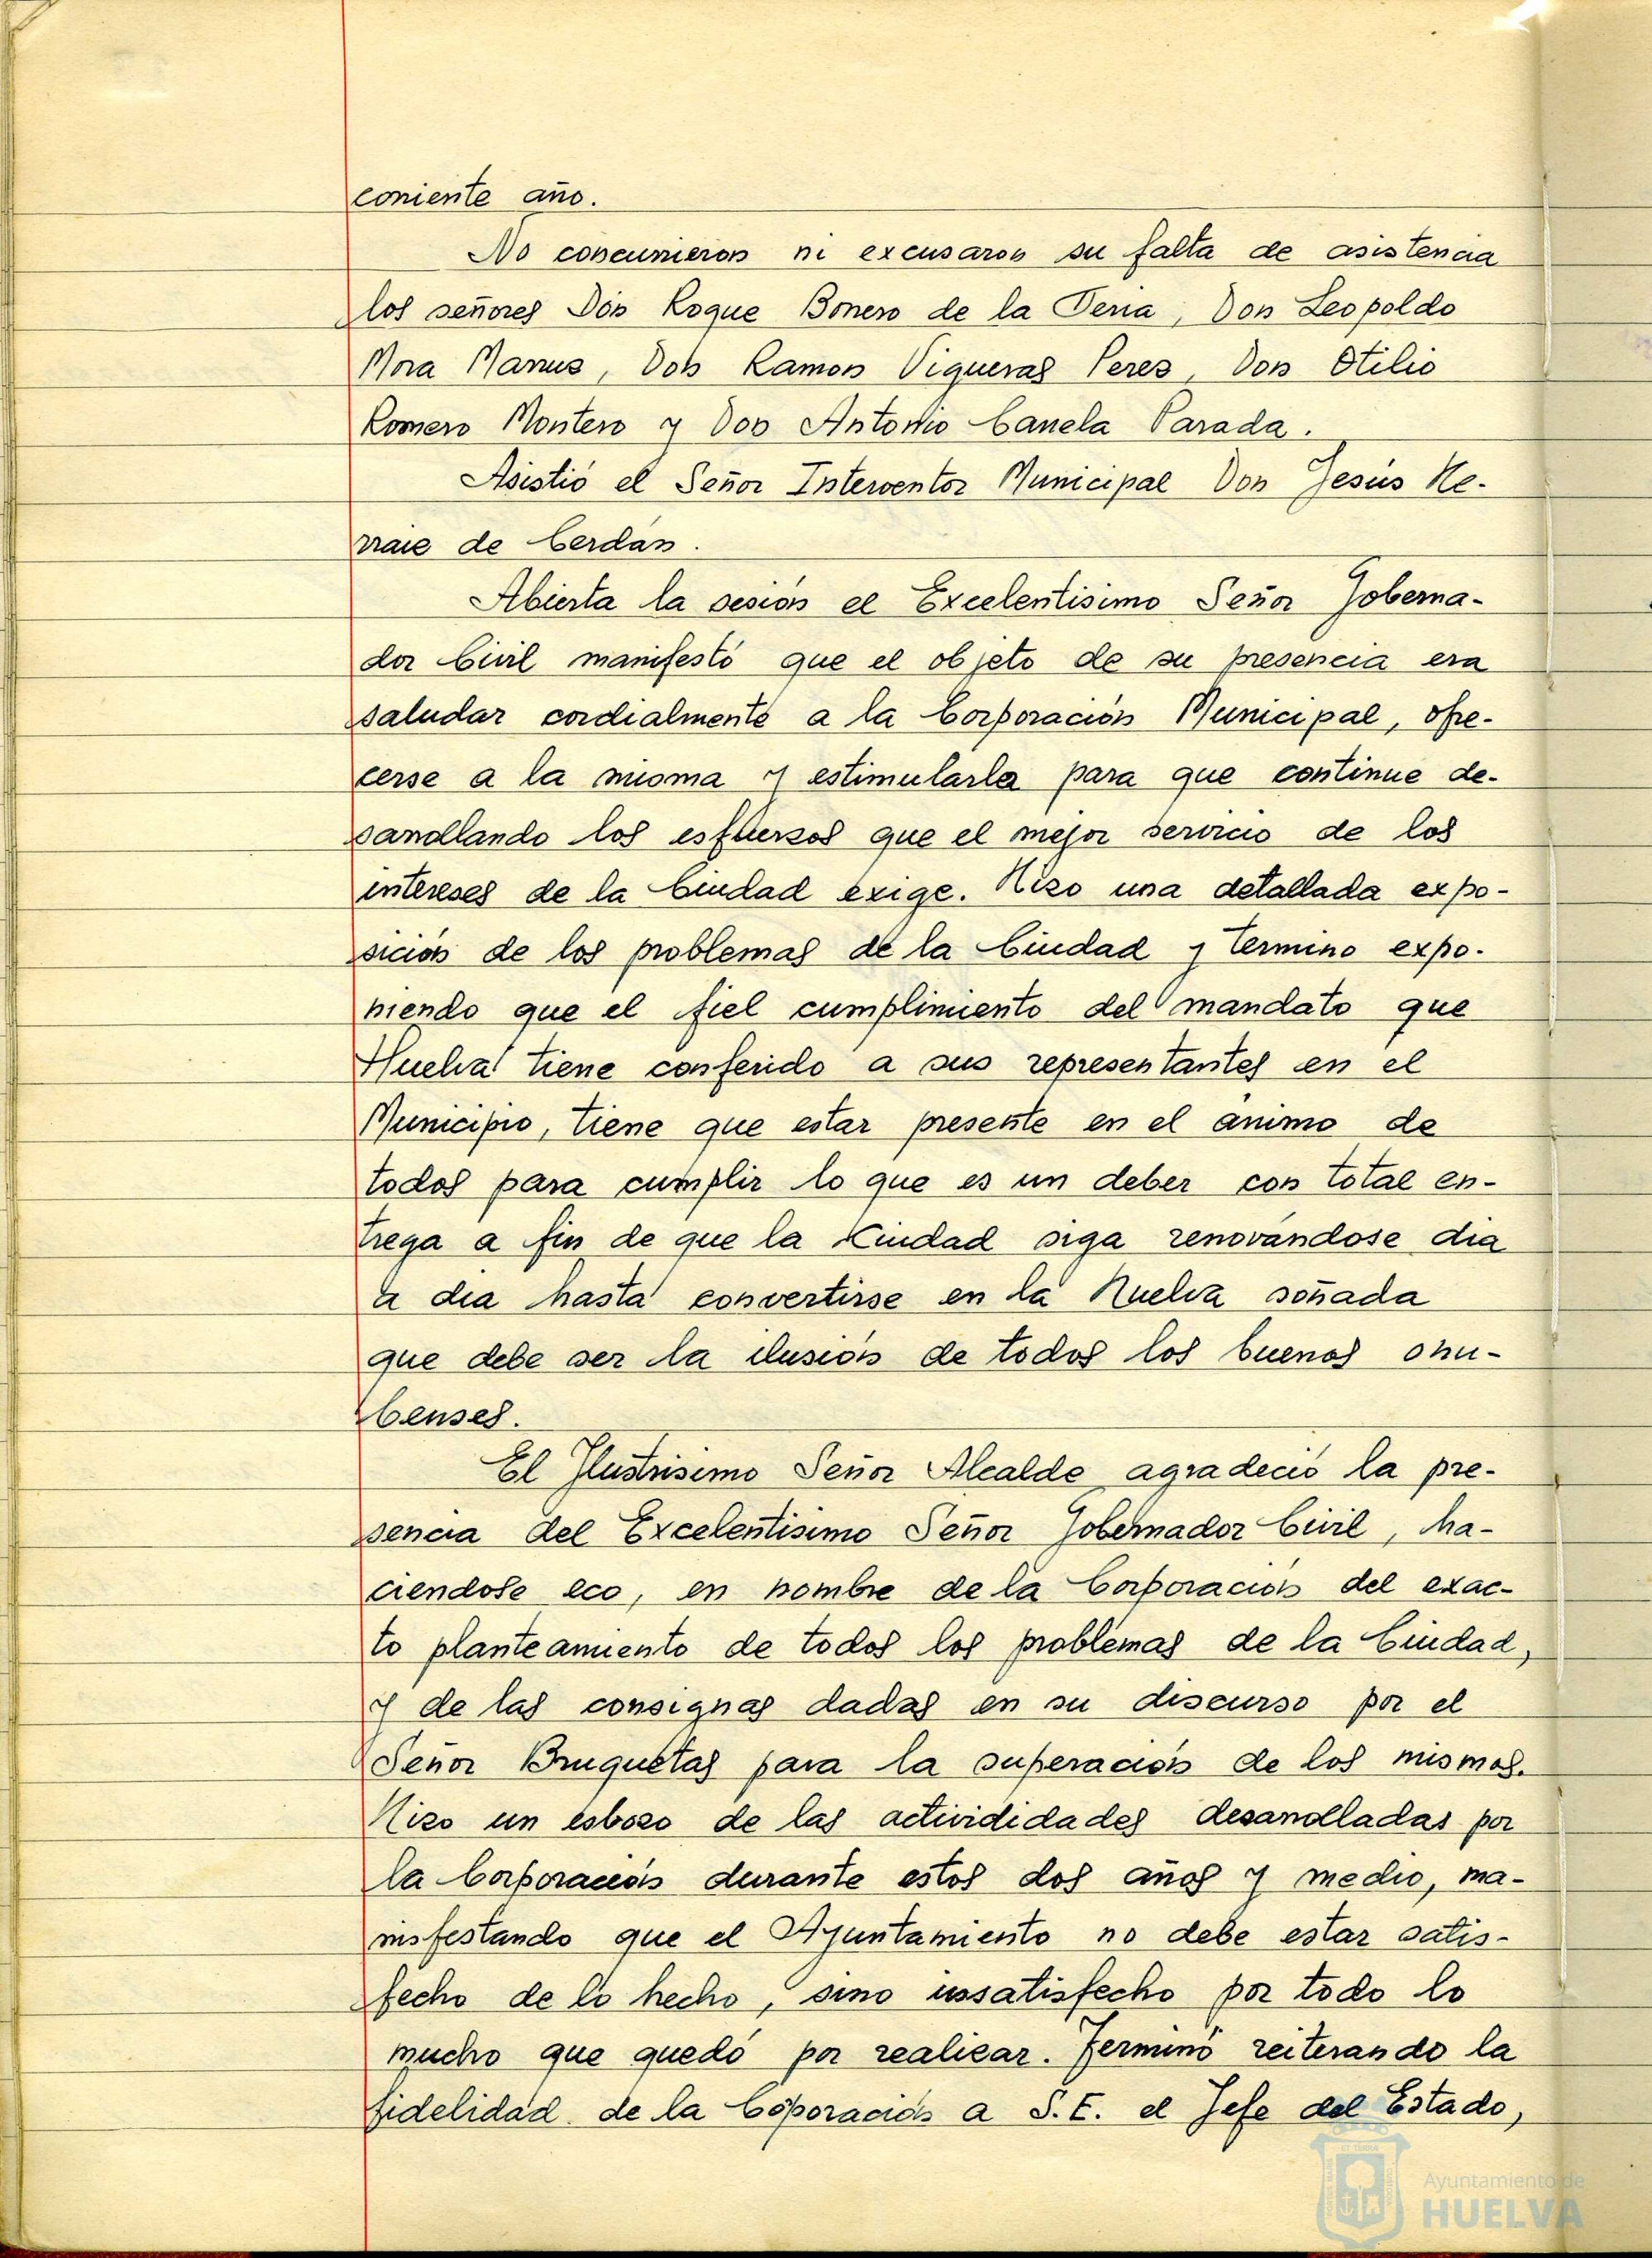 corriente año.
No concurrieron ni excusaron su falta de asistencia
los señores Don Roque Borrero de la Feria, Don Leopoldo
Mora Marrus, Don Ramon Vigueras Peres, Don Otilio
Romero Montero y Don Antonio Canela Parada.
Asistió el Señor Interventor Municipal Don Jesús He-
rraie de Cerdán.
Abierta la sesión el Excelentisimo Señor Goberna-
dor Civil manifestó que el objeto de su presencia era
saludar cordialmente a la Corporación Municipal, ofre-
cerse a la misma y estimularla para que continue de-
sarrollando los esfuerzos que el mejor servicio de los
intereses de la Ciudad exige. Hizo una detallada expo-
sición de los problemas de la Ciudad y termino expo-
niendo que el fiel cumplimiento del mandato que
Huelva tiene conferido a sus representantes en el
Municipio, tiene que estar presente en el animo de
todos para cumplir lo que es un deber con total en-
trega a fin de que la Ciudad siga renovándose dia
a dia hasta convertirse en la Huelva soñada
que debe ser la ilusión de todos los buenos onu-
benses.
El Ilustrisimo Señor Alcalde agradeció la pre-
sencia del Excelentisimo Señor Gobernador Civil, ha-
ciendose eco, en nombre de la Corporación del exac-
to planteamiento de todos los problemas de la Ciudad,
y de las consignas dadas en su discurso por el
Señor Bruquetas para la superación de los mismos.
Hizo un esbozo de las activididades desarrolladas por
la Corporación durante estos dos años y medio, ma-
nisfestando que el Ayuntamiento no debe estar satis-
fecho de lo hecho, sino insatisfecho por todo lo
mucho que quedó por realizar. Terminó reiterando la
fidelidad de la Coporación a S. E. el Jefe del Estado,
Ayuntamiento de
HUELVA